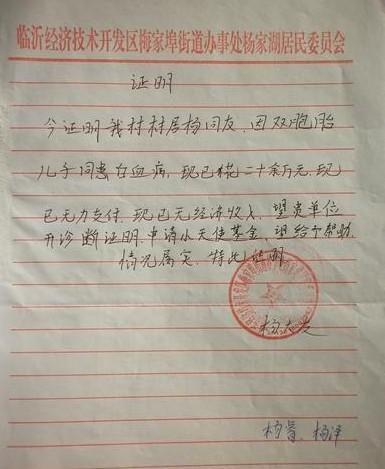 临沂经济技术开发区梅家埠街道办事处杨家湖居民委员会
证明
今证明我村村居杨同友，因双胞胎
儿子同患白血病，现已花二十余万元，现
已无力支付，现已无经济收入，望贵单位
开诊断证明，申请小天使基金，望给予帮助，
情况属实，特此证明